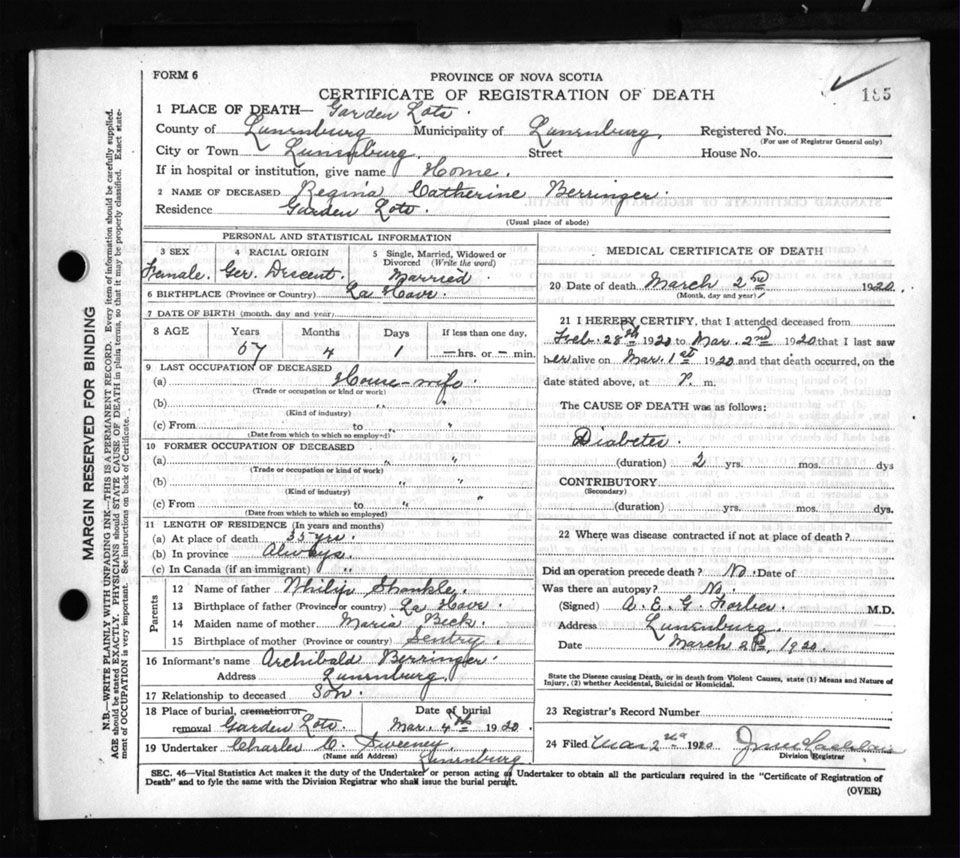 FORM 6
PROVINCE OF NOVA SCOTIA
CERTIFICATE OF REGISTRATION OF DEATH
185
1 PLACE OF DEATH— Garden Lots.
County of Lunenburg Municipality of Lunenburg. Registered No.
(For use of Registrar General only)
City or Town Lunenburg. Street House No.
If in hospital or institution, give name Home.
2 NAME OF DECEASED Regina Catherine Berringer.
Residence Garden Lots.
(Usual place of abode)
PERSONAL AND STATISTICAL INFORMATION
3 SEX Female.
4 RACIAL ORIGIN Ger. Descent.
5 Single, Married, Widowed or Divorced (Write the word) Married
6 BIRTHPLACE (Province or Country) La Have.
7 DATE OF BIRTH (month, day and year)
8 AGE Years Months Days If less than one day,
57 4 1 — hrs. or — min.
9 LAST OCCUPATION OF DECEASED
(a) House-wife.
(Trade or occupation or kind or work)
(b) "
(Kind of industry)
(c) From to " "
(Date from which to which so employed)
10 FORMER OCCUPATION OF DECEASED
(a) " "
(Trade or occupation or kind of work)
(b) "
(Kind of industry)
(c) From to " "
(Date from which to which so employed)
11 LENGTH OF RESIDENCE (In years and months)
(a) At place of death 35 yrs.
(b) In province Always.
(c) In Canada (if an immigrant) "
Parents
12 Name of father Philip Shankle.
13 Birthplace of father (Province or country) La Have.
14 Maiden name of mother Maria Beck.
15 Birthplace of mother (Province or country)
16 Informant's name Archibald Berringer.
Address Lunenburg.
17 Relationship to deceased Son.
18 Place of burial, cremation or removal Garden Lots.
Date of burial Mar. 4th 1920
19 Undertaker Charles C. Sweeney.
(Name and Address) Lunenburg.
MEDICAL CERTIFICATE OF DEATH
20 Date of death March 2nd 1920.
(Month, day and year)
21 I HEREBY CERTIFY, that I attended deceased from
Feb. 28th 1920 to Mar. 2nd 1920 that I last saw
her alive on Mar. 1st 1920 and that death occurred, on the
date stated above, at P. m.
The CAUSE OF DEATH was as follows:
Diabetes.
(duration) 2 yrs. mos. dys
CONTRIBUTORY
(Secondary)
(duration) yrs. mos. dys.
22 Where was disease contracted if not at place of death?
Did an operation precede death? No. Date of
Was there an autopsy? No.
(Signed) A. E. G. Forbes. M.D.
Address Lunenburg.
Date March 2nd, 1920.
State the Disease causing Death, or in death from Violent Causes, state (1) Means and Nature of
Injury, (2) whether Accidental, Suicidal or Homicidal.
23 Registrar's Record Number
24 Filed Mar 2nd 1920
Division Registrar
SEC. 46—Vital Statistics Act makes it the duty of the Undertaker or person acting as Undertaker to obtain all the particulars required in the "Certificate of Registration of
Death" and to fyle the same with the Division Registrar who shall issue the burial permit.
(OVER)
MARGIN RESERVED FOR BINDING
N.B.—WRITE PLAINLY WITH UNFADING INK—THIS IS A PERMANENT RECORD. Every item of information should be carefully supplied.
AGE should be stated EXACTLY. PHYSICIANS should STATE CAUSE OF DEATH in plain terms, so that it may be properly classified. Exact statement of OCCUPATION is very important. See instructions on back of Certificate.